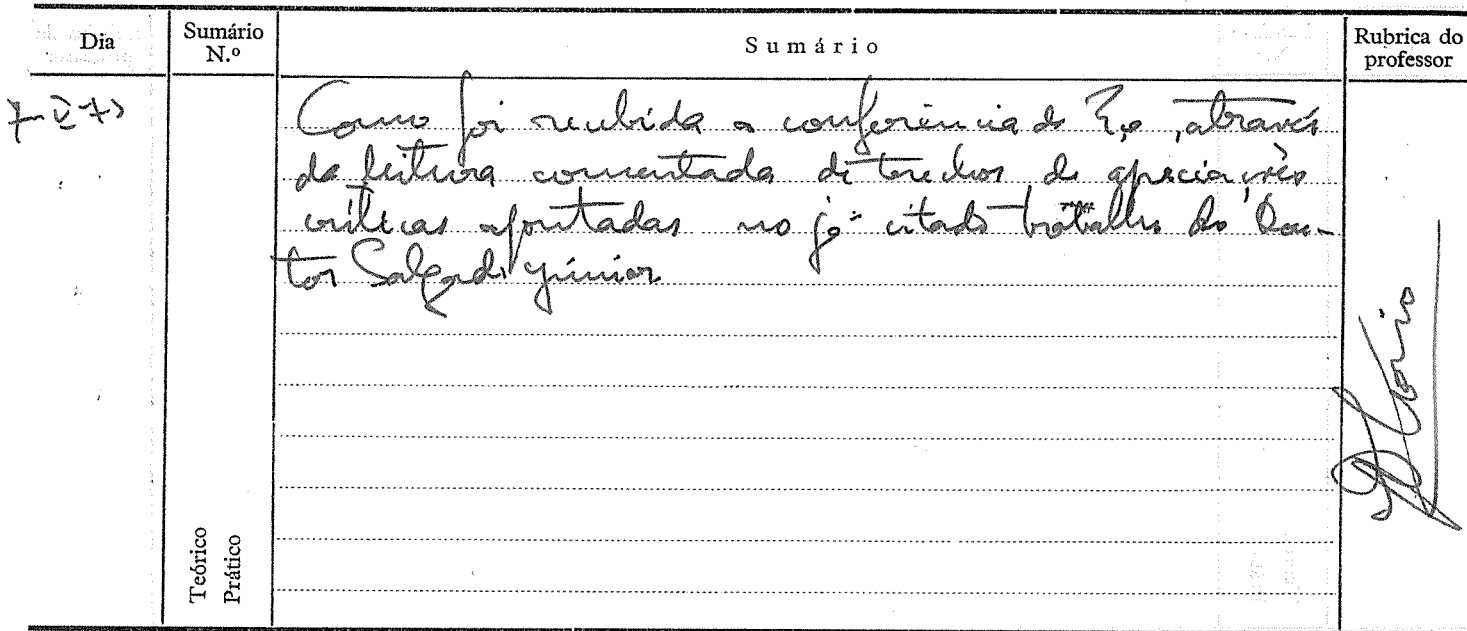 Dia
Sumário
N.º
Sumário
Rubrica do
professor
Como foi recebida a conferência de, através
da leitura comentada de trechos de apreciações
críticas apontadas no já citado trabalho do Dou-
tor Salgado Júnior
Teórico
Prático